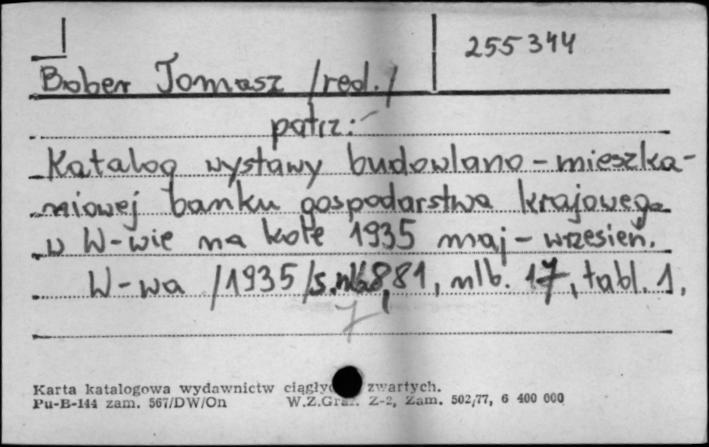 255344
Bober Tomasz /red./
patrz:
Katalog wystawy budowlano-mieszka-
niowej banku gospodarstwa krajowego
w W-wie na kole 1935 maj-wrzesień.
W-wa /1935/ s. nlb. 8, 81, nlb. 17, tabl. 1,
7
Karta katalogowa wydawnictw zwartych.
Pu-B-144 zam. 567/DW/On W.Z.Graf. Z-2, Zam. 502/77, 6 400 000